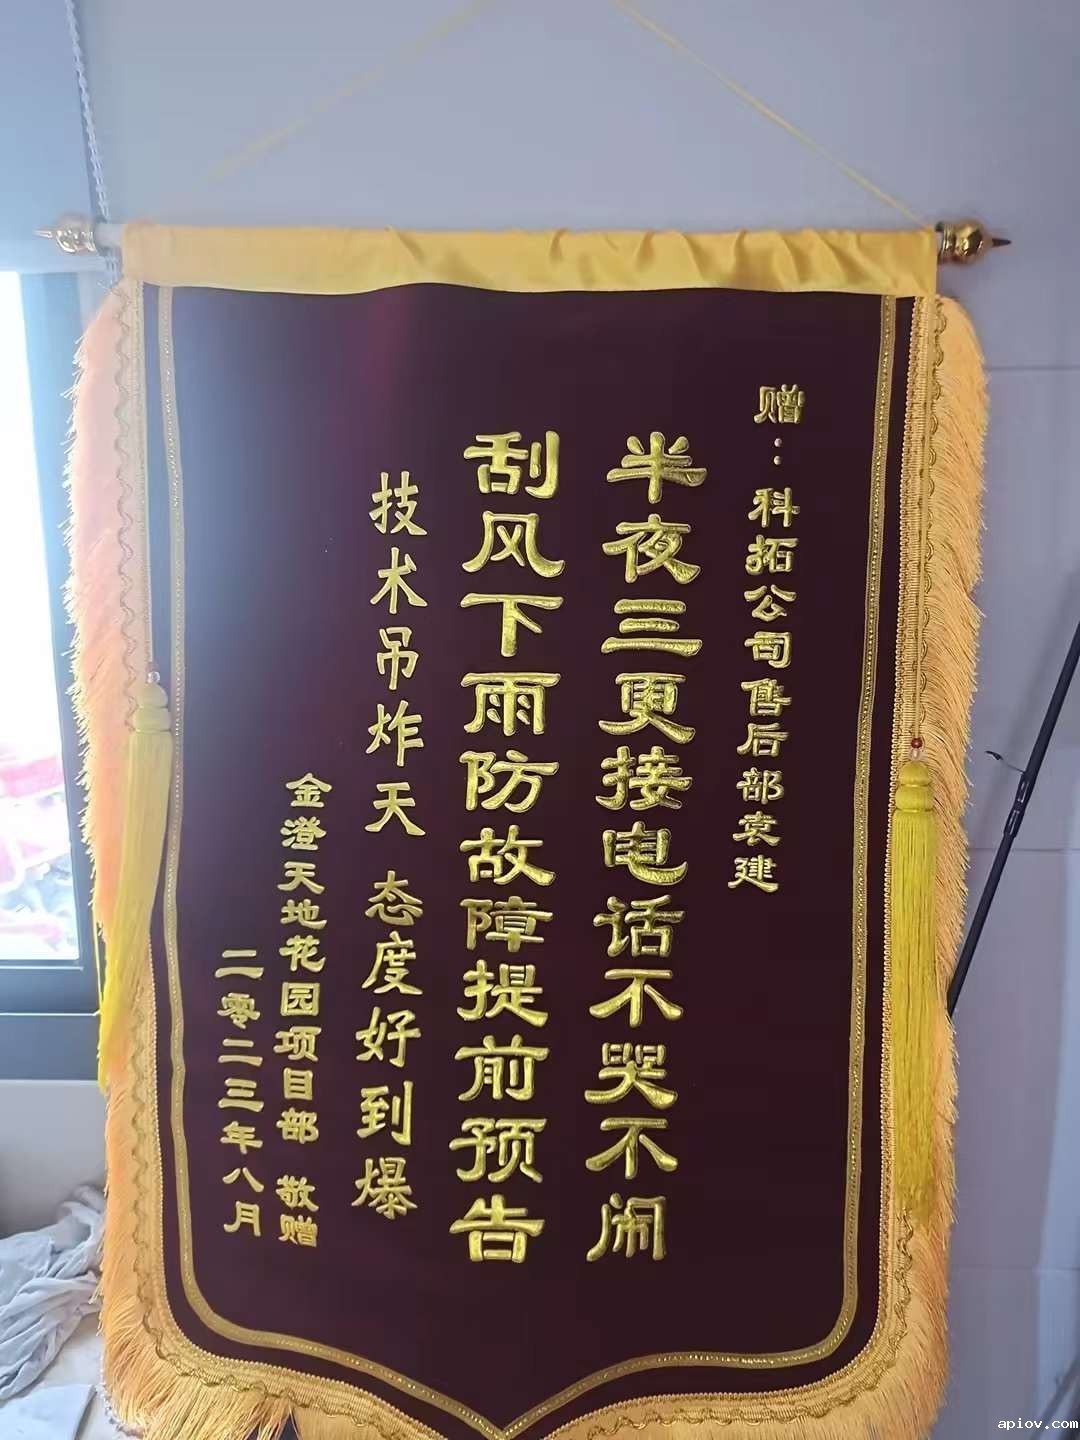 赠：科拓公司售后部袁建
半夜三更接电话不哭不闹
刮风下雨防故障提前预告
技术吊炸天 态度好到爆
金澄天地花园项目部 敬赠
二零二三年八月
apiov.com